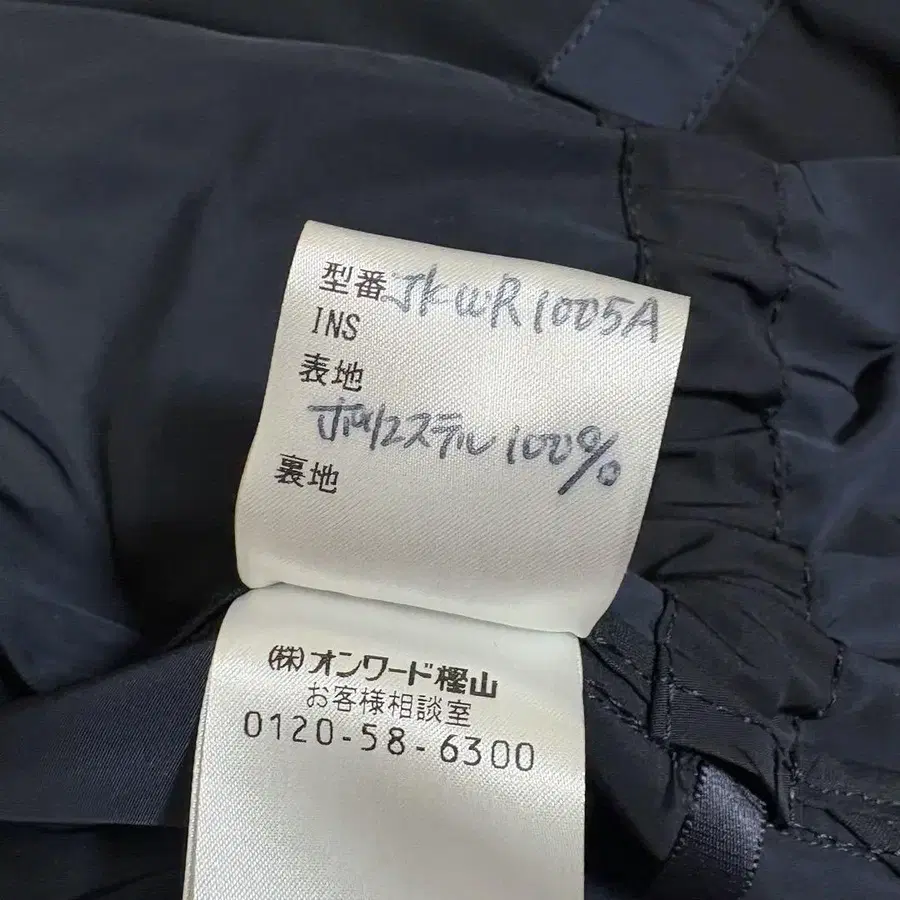 型番 JKWR1005A
INS
表地
ポリエステル 100%
裏地
㈱オンワード樫山
お客様相談室
0120-58-6300